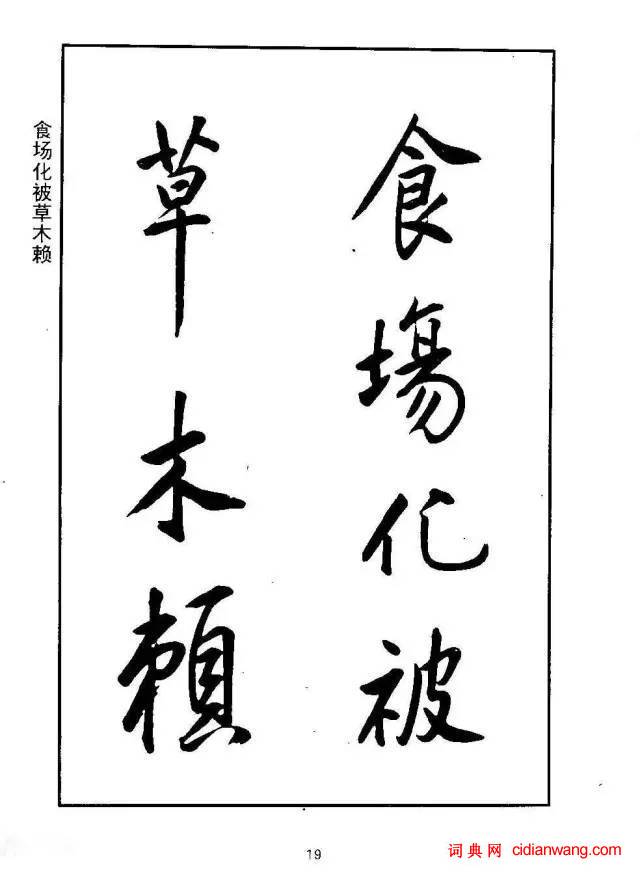 食場化被
草木賴
食场化被草木赖
19
词典网 cidianwang.com